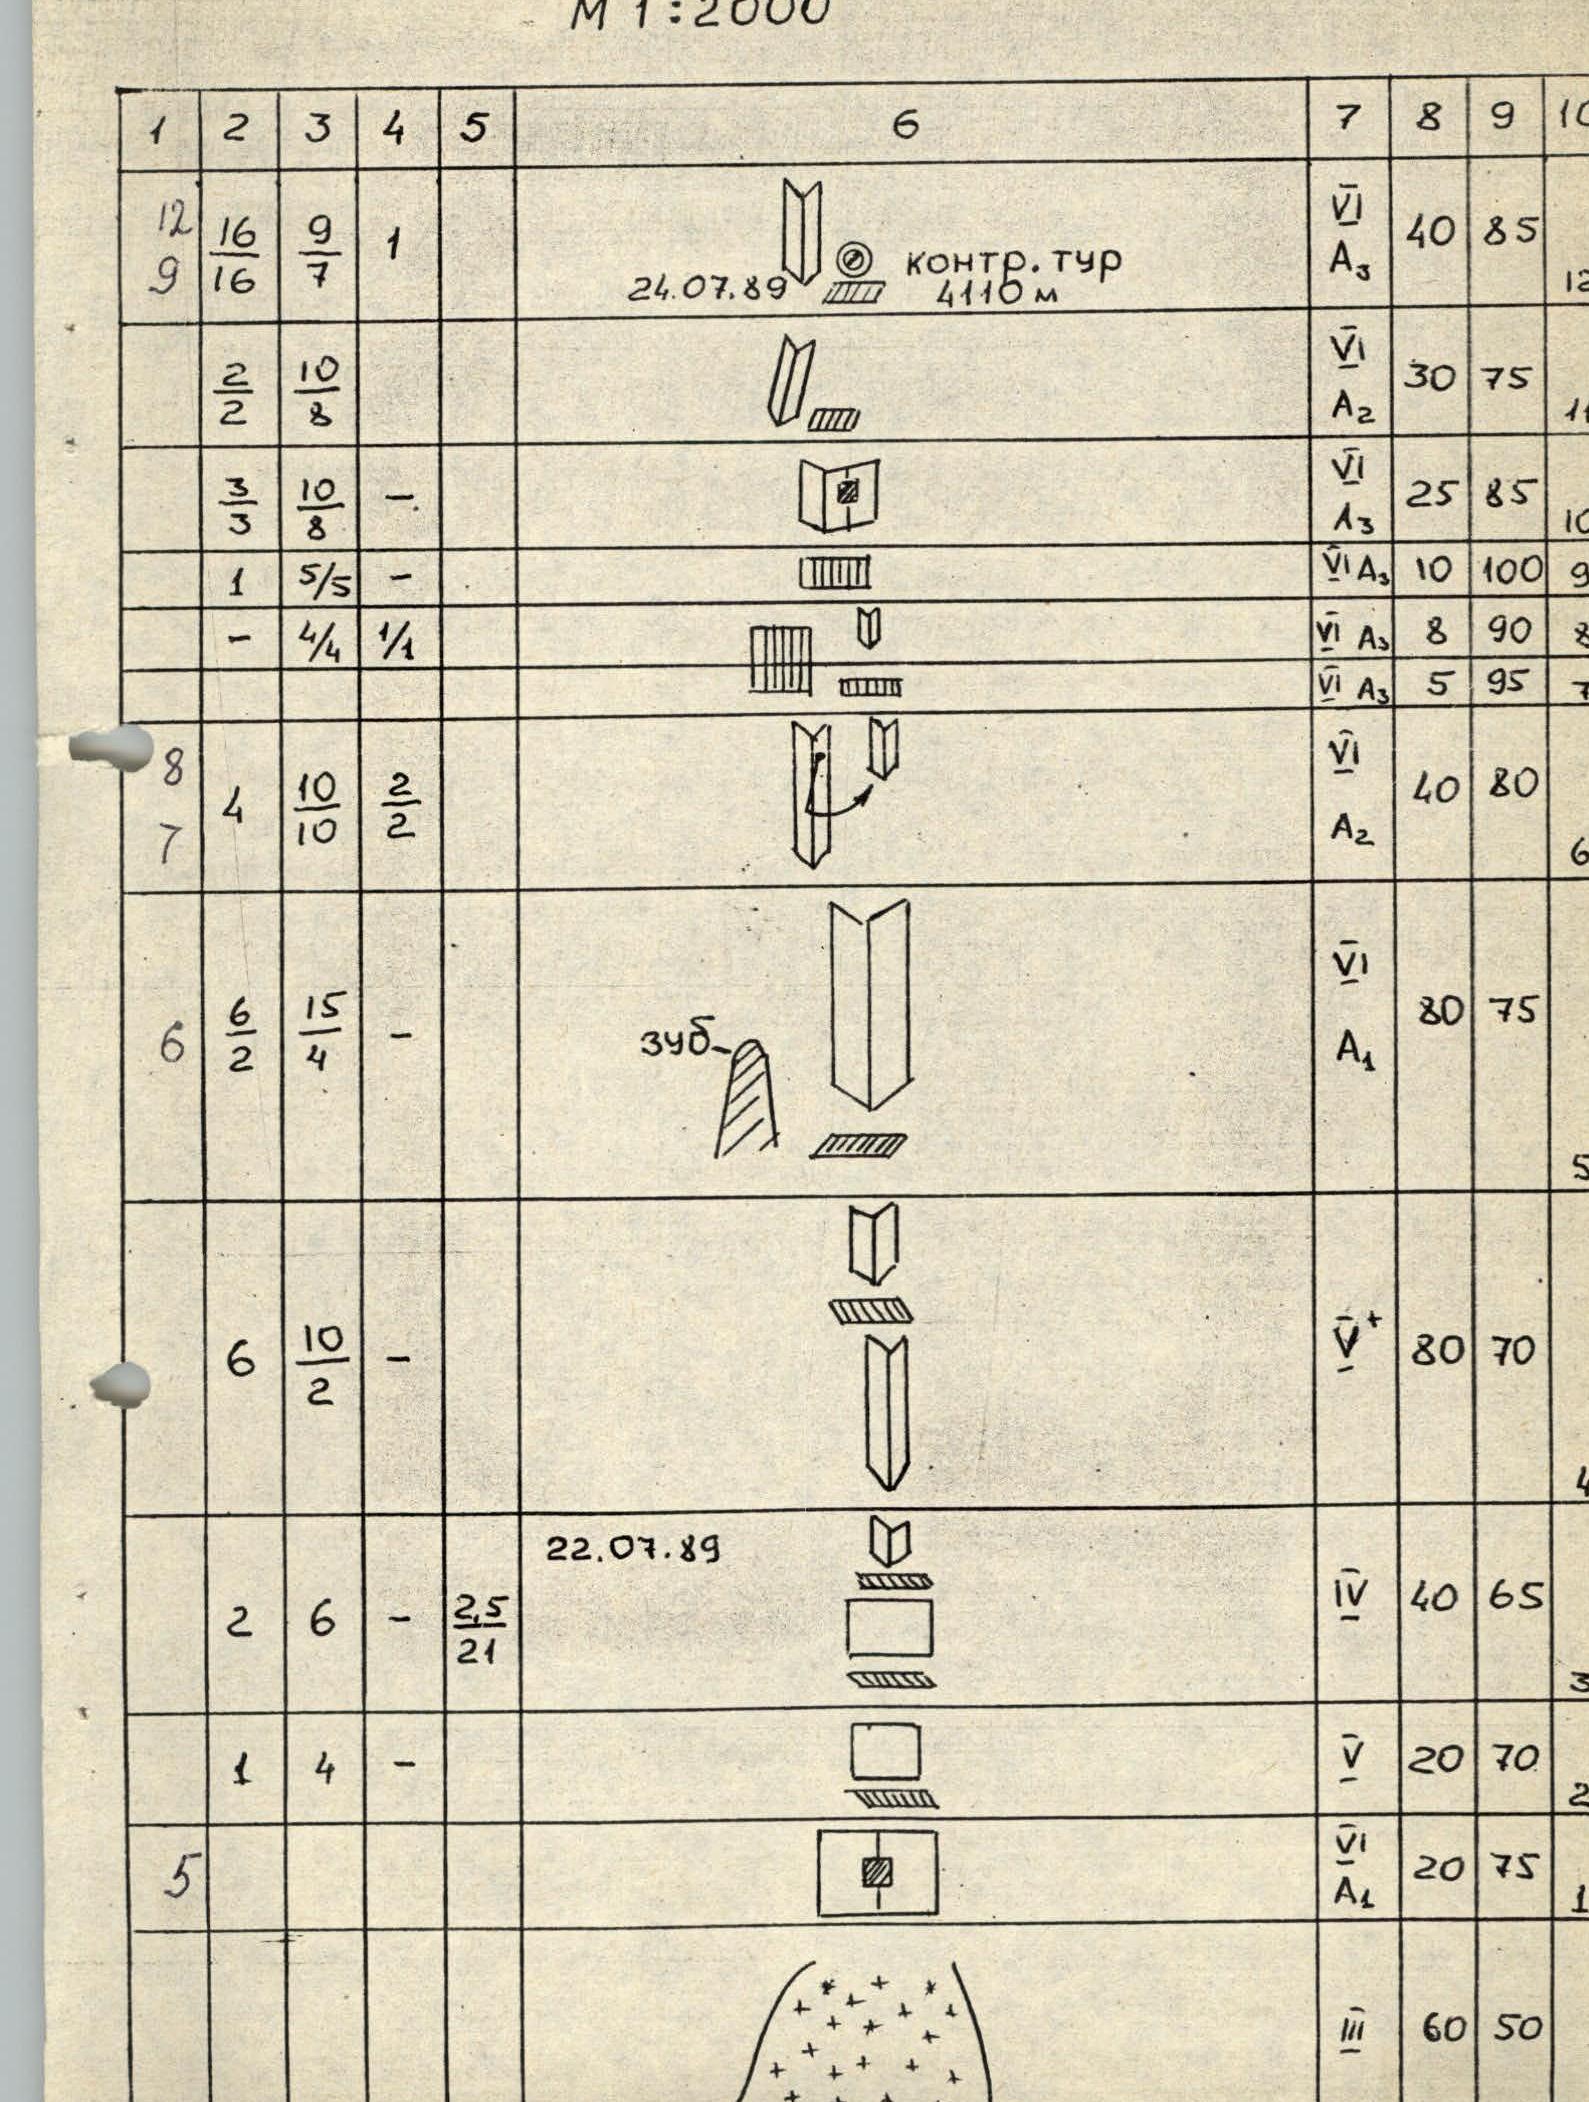 М 1:2000
1 2 3 4 5 6 7 8 9 10
12 9 16/16 9/7 1 24.07.89 контр. тур 4110 м VI A3 40 85 12
2/2 10/8 VI A2 30 75 11
3/3 10/8 - VI A3 25 85 10
1 5/5 - VI A3 10 100 9
- 4/4 1/1 VI A3 8 90 8
VI A3 5 95 7
8 7 4 10/10 2/2 VI A2 40 80 6
6 6/2 15/4 - зуб VI A1 80 75 5
6 10/2 - V+ 80 70 4
2 6 - 2,5/21 22.07.89 IV 40 65 3
1 4 - V 20 70 2
5 VI A1 20 75 1
III 60 50